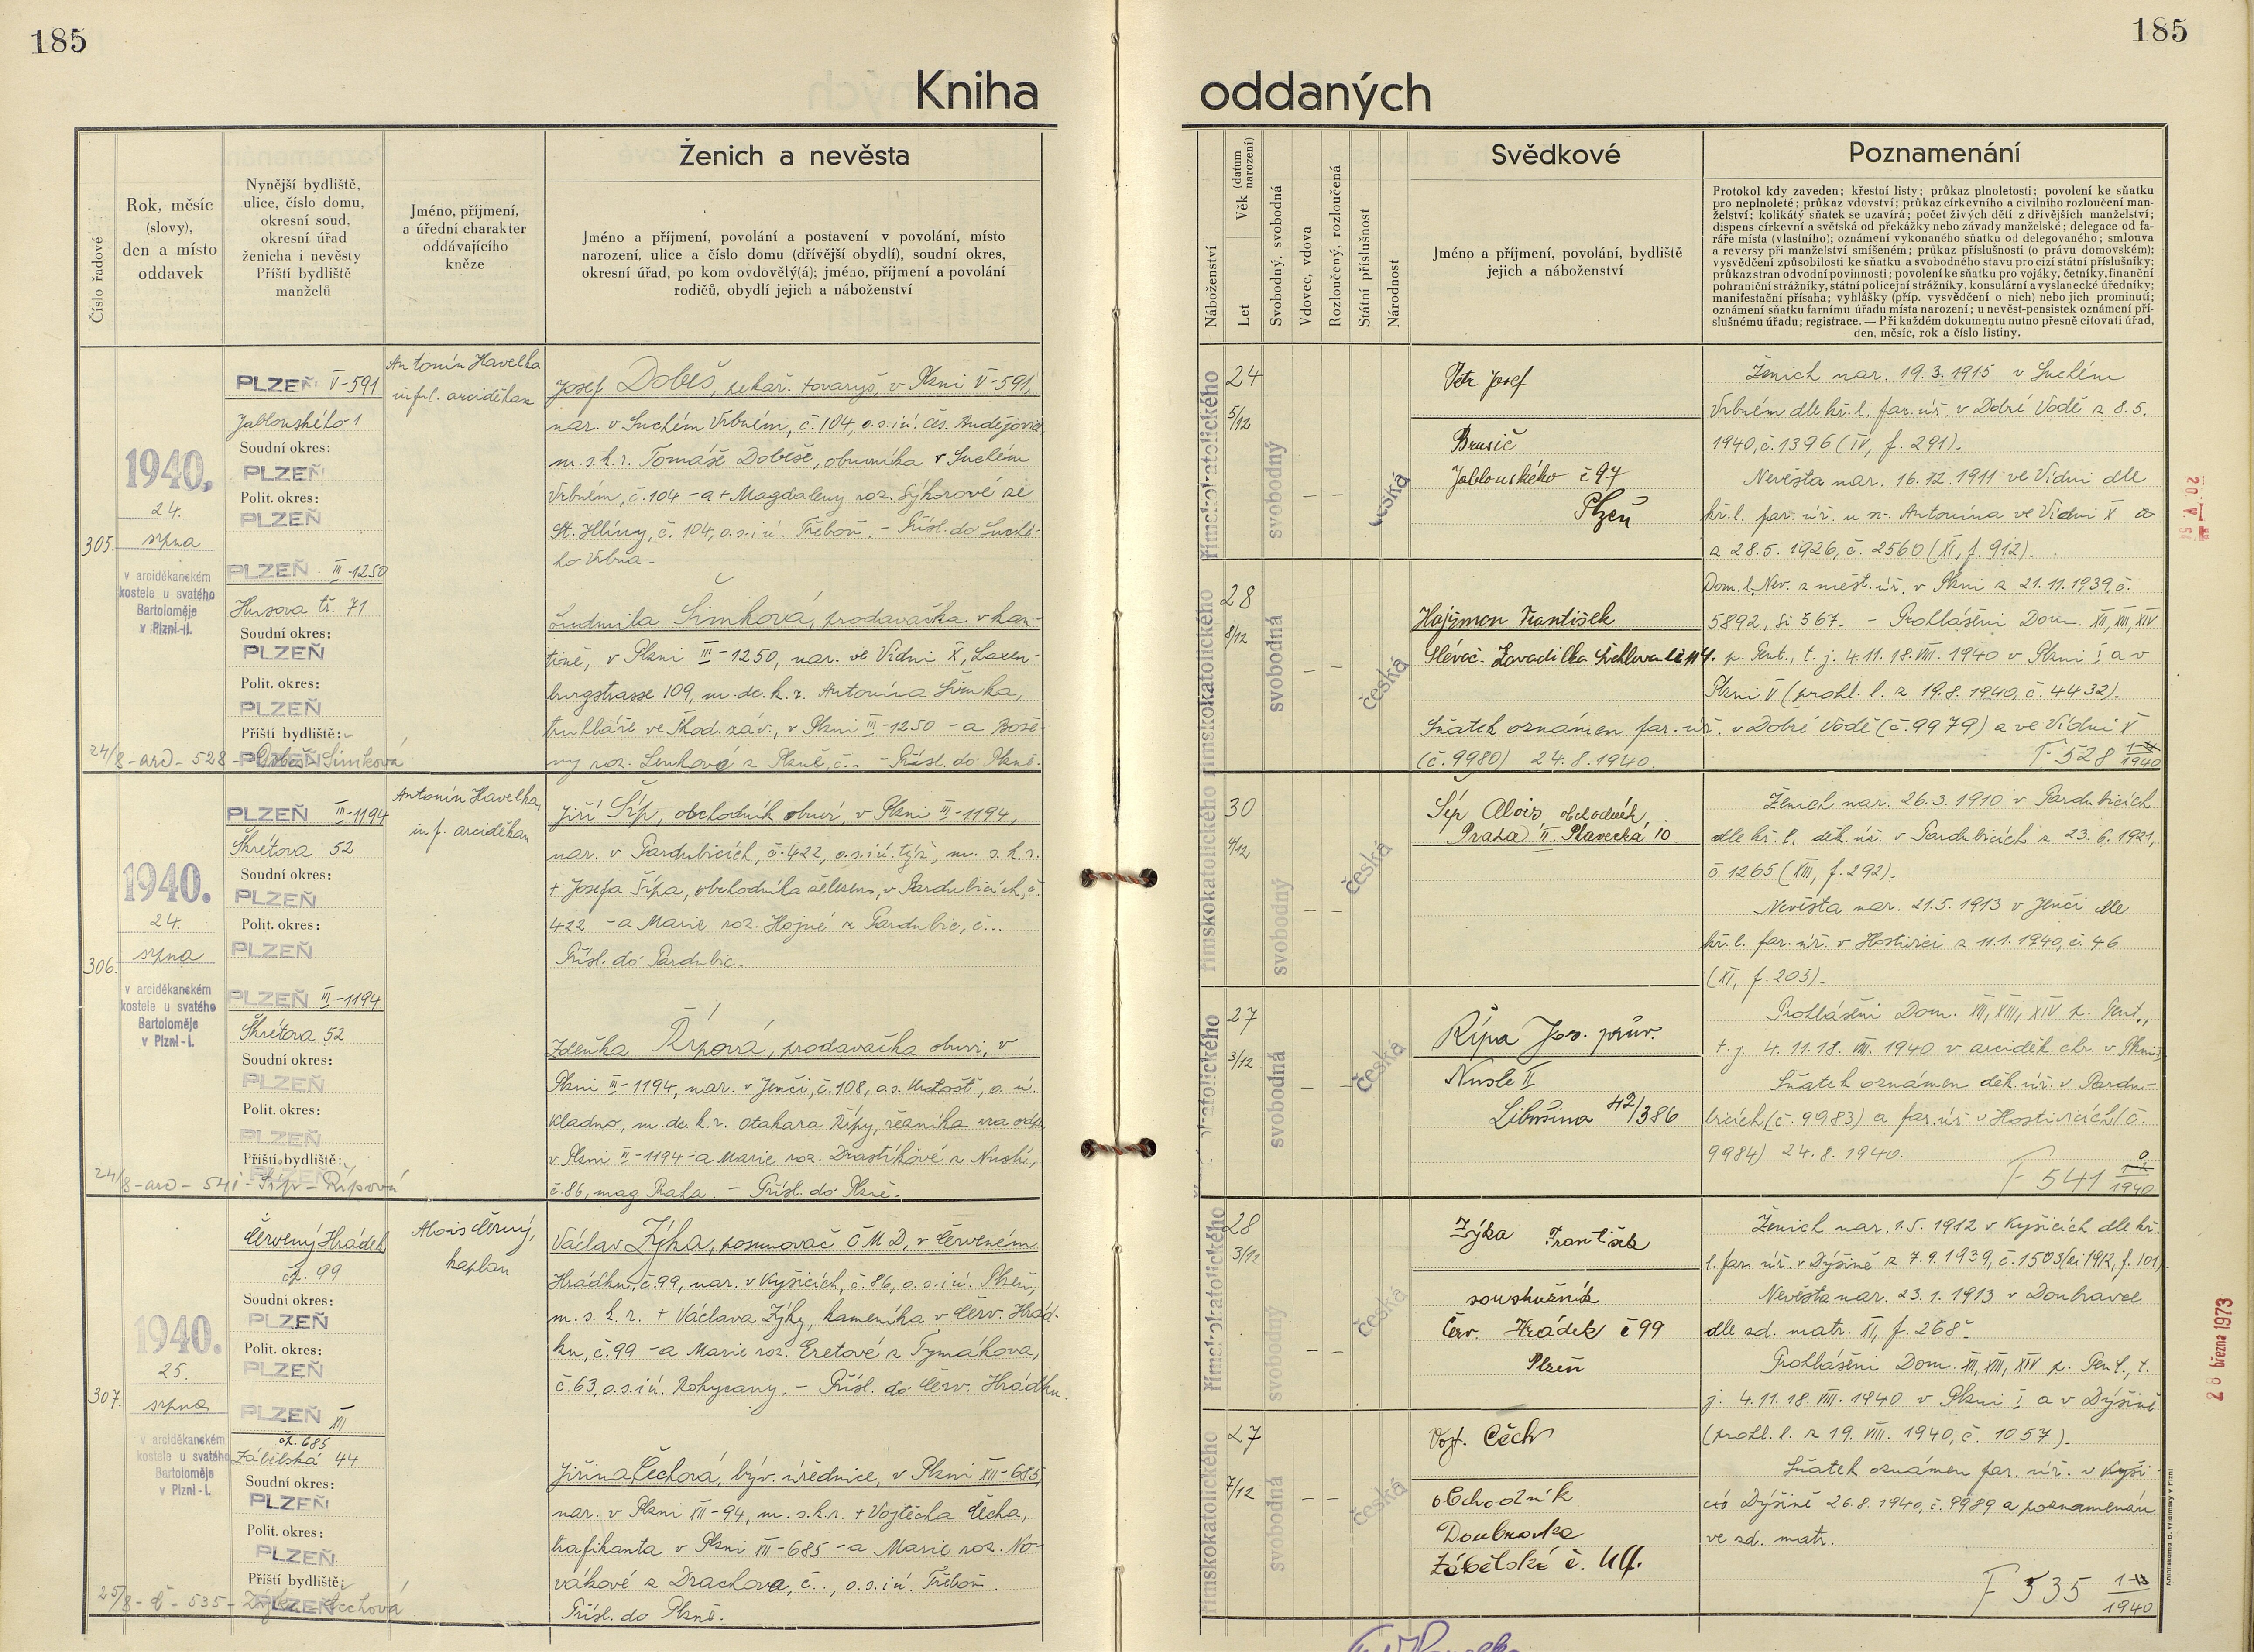 185
185
Kniha
oddaných
Číslo řadové
Rok, měsíc
(slovy),
den a místo
oddavek
Nynější bydliště,
ulice, číslo domu,
okresní soud,
okresní úřad
ženicha i nevěsty
Příští bydliště
manželů
Jméno, příjmení,
a úřední charakter
oddávajícího
kněze
Ženich a nevěsta
Jméno a příjmení, povolání a postavení v povolání, místo
narození, ulice a číslo domu (dřívější obydlí), soudní okres,
okresní úřad, po kom ovdovělý(á); jméno, příjmení a povolání
rodičů, obydlí jejich a náboženství
Náboženství
Věk (datum narození)
Let
Svobodný, svobodná
Vdovec, vdova
Rozloučený, rozloučená
Státní příslušnost
Národnost
Svědkové
Jméno a příjmení, povolání, bydliště
jejich a náboženství
Poznamenání
Protokol kdy zaveden; křestní listy; průkaz plnoletosti; povolení ke sňatku
pro neplnoleté; průkaz vdovství; průkaz církevního a civilního rozloučení man-
želství; kolikátý sňatek se uzavírá; počet živých dětí z dřívějších manželství;
dispens církevní a světská od překážky nebo závady manželské; delegace od fa-
ráře místa (vlastního); oznámení vykonaného sňatku od delegovaného; smlouva
a reversy při manželství smíšeném; průkaz příslušnosti (o právu domovském);
vysvědčení způsobilosti ke sňatku a svobodného stavu pro cizí státní příslušníky;
průkaz stran odvodní povinnosti; povolení ke sňatku pro vojáky, četníky, finanční
pohraniční strážníky, státní policejní strážníky, konsulární a vyslanecké úředníky;
manifestační přísaha; vyhlášky (příp. vysvědčení o nich) nebo jich prominutí;
oznámení sňatku farnímu úřadu místa narození; u nevěst-pensistek oznámení pří-
slušnému úřadu; registrace. — Při každém dokumentu nutno přesně citovati úřad,
den, měsíc, rok a číslo listiny.
305.
1940.
24.
srpna
v arciděkanském
kostele u svatého
Bartoloměje
v Plzni-I.
PLZEŇ V-591
Jablonského 1
Soudní okres:
PLZEŇ
Polit. okres:
PLZEŇ
PLZEŇ III-1250
Husova tř. 71
Soudní okres:
PLZEŇ
Polit. okres:
PLZEŇ
Příští bydliště:
PLZEŇ
24/8 - ard - 528 - Dobeš - Šimková
Antonín Havelka
inful. arciděkan
Josef Dobeš, pekař. tovaryš, v Plzni V-591,
nar. v Suchém Vrbném, č. 104, o.s. i ú. Čes. Budějovice,
m. s. k. r. Tomáše Dobeše, obuvníka v Suchém
Vrbném, č. 104 - a + Magdaleny roz. Sýkorové ze
St. Hlíny, č. 104, o.s. i ú. Třeboň. - Přísl. do Suché-
ho Vrbna.
Ludmila Šimková, prodavačka v kan-
tině, v Plzni III-1250, nar. ve Vídni X, Laxen-
burgstrasse 109, m. dc. k. r. Antonína Šimka,
truhláře ve Škod. záv., v Plzni III-1250 - a Bože-
ny roz. Lenkové z Plzně, č.. - Přísl. do Plzně.
římskokatolického
24
5/12
svobodný
česká
římskokatolického
28
8/12
svobodná
česká
Petr Josef
Brusič
Jablonského č 97
Plzeň
Hajšman František
Slévač. Zavadilka
Ženich nar. 19.3.1915 v Suchém
Vrbném dle kř. l. far. úř. v Dobré Vodě z 8.5.
1940, č. 1396 (IV, f. 291).
Nevěsta nar. 16.12.1911 ve Vídni dle
kř. l. far. úř. u sv. Antonína ve Vídni X
z 28.5. 1926, č. 2560 (XI, f. 912).
Dom. l. Nev. z měst. úř. v Plzni z 21.11.1939, č.
5892, fi 567. - Prohlášeni Dom. XII, XIII, XIV
p. Pent., t. j. 4.11.18. VIII. 1940 v Plzni I a v
Plzni V (prohl. l. z 19.8.1940, č. 4432).
Sňatek oznámen far. úř. v Dobré Vodě (č. 9979) a ve Vídni X
(č. 9980) 24.8.1940.
F 528 1940
306.
1940.
24.
srpna
v arciděkanském
kostele u svatého
Bartoloměje
v Plzni-I.
PLZEŇ III-1194
Škrétova 52
Soudní okres:
PLZEŇ
Polit. okres:
PLZEŇ
PLZEŇ III-1194
Škrétova 52
Soudní okres:
PLZEŇ
Polit. okres:
PLZEŇ
Příští bydliště:
PLZEŇ
24/8 - ard - 541 - Šíp - Řípová
Antonín Havelka,
inf. arciděkan
Jiří Šíp, obchodník obuví, v Plzni III-1194,
nar. v Pardubicích, č. 422, o.s. i ú. týž, m. s. k. r.
+ Josefa Šípa, obchodníka železem, v Pardubicích, č.
422 - a Marie roz. Hojné z Pardubic, č...
Přísl. do Pardubic.
Zdeňka Řípová, prodavačka obuvi, v
Plzni III-1194, nar. v Jenči, č. 108, o.s. Unhošť, o. ú.
Kladno, m. dc. k. r. Otakara Řípy, řezníka na odp.,
v Plzni III-1194 - a Marie roz. Drastíkové z Nuslí,
č. 86, mag. Praha. - Přísl. do Plzně.
římskokatolického
30
4/12
svobodný
česká
27
3/12
svobodná
česká
Šíp Alois, obchodník,
Praha II. Plavecká 10
Řípa Jos. prův.
Nusle II
Libušina 42/386
Ženich nar. 26.3.1910 v Pardubicích
dle kř. l. děk. úř. v Pardubicích z 23.6.1921,
č. 1265 (XIII, f. 292).
Nevěsta nar. 21.5.1913 v Jenči dle
kř. l. far. úř. v Hostivici z 11.1.1940, č. 46
(XI, f. 203).
Prohlášeni Dom. XII, XIII, XIV p. Pent.,
t. j. 4.11.18. VIII. 1940 v arciděk. chr. v Plzni.
Sňatek oznámen děk. úř. v Pardu-
bicích (č. 9983) a far. úř. v Hostivicích (č.
9984) 24.8.1940.
F 541 1940
307.
1940.
25.
srpna
v arciděkanském
kostele u svatého
Bartoloměje
v Plzni-I.
Červený Hrádek
čp. 99
Soudní okres:
PLZEŇ
Polit. okres:
PLZEŇ
PLZEŇ XII
čp. 685
Zábělská 44
Soudní okres:
PLZEŇ
Polit. okres:
PLZEŇ
Příští bydliště:
PLZEŇ
25/8 - č - 535 - Zýka - Čechová
Alois Černý,
kaplan
Václav Zýka, posunovač ČMD, v Červeném
Hrádku, č. 99, nar. v Kyšicích, č. 86, o.s. i ú. Plzeň,
m. s. k. r. + Václava Zýky, kameníka v Červ. Hrád-
ku, č. 99 - a Marie roz. Eretové z Tymákova,
č. 63, o.s. i ú. Rokycany. - Přísl. do Červ. Hrádku.
Jiřina Čechová, býv. úřednice, v Plzni XII-685,
nar. v Plzni XII-94, m. s. k. r. + Vojtěcha Čecha,
trafikanta v Plzni XII-685 - a Marie roz. No-
vákové z Drachova, č.., o.s. i ú. Třeboň.
Přísl. do Plzně.
římskokatolického
28
3/12
svobodný
česká
římskokatolického
27
7/12
svobodná
česká
Zýka František
soustružník
Červ. Hrádek č 99
Plzeň
Vojt. Čech
obchodník
Doubravka
Zábělská č. 44.
Ženich nar. 1.5.1912 v Kyšicích dle kř.
l. far. úř. v Dýšině z 7.9.1939, č. 1503 (xi 1912, f. 101)
Nevěsta nar. 23.1.1913 v Doubravce
dle zd. matr. XI, f. 268.
Prohlášeni Dom. XII, XIII, XIV p. Pent., t.
j. 4.11.18. VIII. 1940 v Plzni I a v Dýšině
(prohl. l. z 19. VIII. 1940, č. 1057).
Sňatek oznámen far. úř. v
Dýšině 26.8.1940, č. 9989 a poznamenán
ve zd. matr.
F 535 1940
28 března 1973